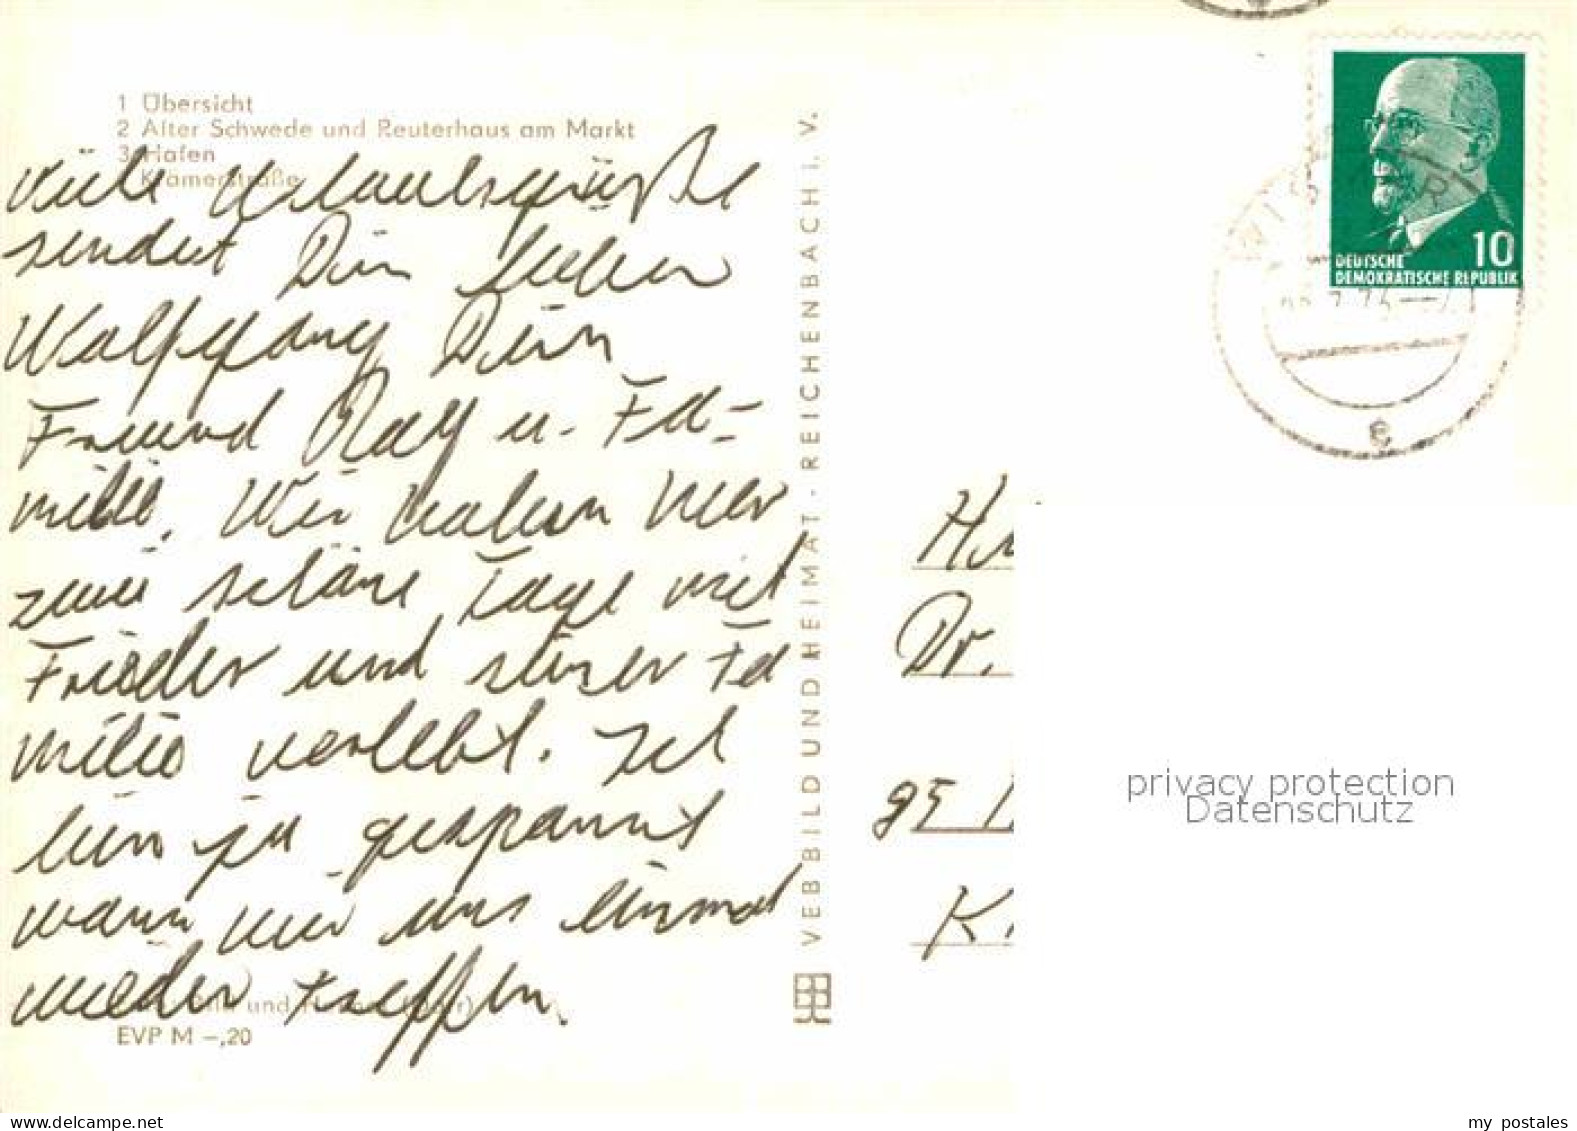 1 Übersicht
2 Alter Schwede und Reuterhaus am Markt
3 Hafen
Krämerstraße
viele Urlaubsgrüße
sendet Dir lieber
Wolfgang Dein
Freund Ralf u. Fa-
milie. Wir haben hier
zwei schöne Tage mit
Frieder und seiner Fa
milie verlebt. Ich
bin ja gespannt
wann wir uns einmal
wieder treffen.
und
EVP M –,20
VEB BILD UND HEIMAT · REICHENBACH I. V.
10
DEUTSCHE
DEMOKRATISCHE REPUBLIK
WIS
e
Dr.
95
K
privacy protection
Datenschutz
www.delcampe.net
my_postales